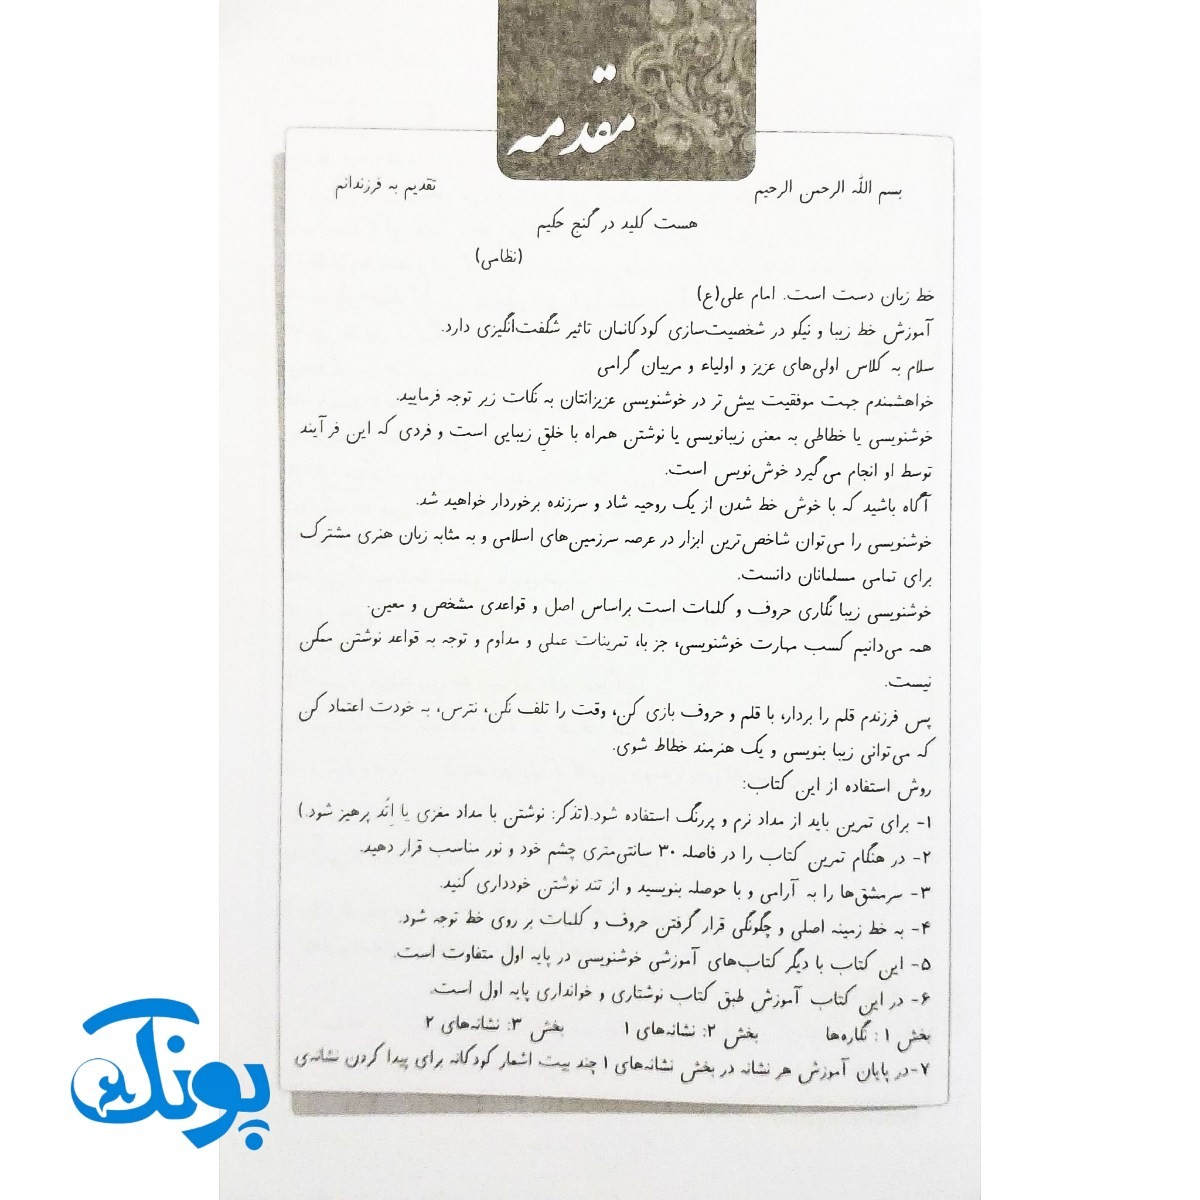 مقدمه
بسم الله الرحمن الرحیم
تقدیم به فرزندانم
هست کلید در گنج حکیم
(نظامی)
خط زبان دست است. امام علی(ع)
آموزش خط زیبا و نیکو در شخصیت‌سازی کودکانمان تاثیر شگفت‌انگیزی دارد.
سلام به کلاس اولی‌های عزیز و اولیاء و مربیان گرامی
خواهشمندم جهت موفقیت بیش‌تر در خوشنویسی عزیزانتان به نکات زیر توجه فرمایید.
خوشنویسی یا خطاطی به معنی زیبانویسی یا نوشتن همراه با خلقِ زیبایی است و فردی که این فرآیند
توسط او انجام می‌گیرد خوش‌نویس است.
آگاه باشید که با خوش خط شدن از یک روحیه شاد و سرزنده برخوردار خواهید شد.
خوشنویسی را می‌توان شاخص‌ترین ابزار در عرصه سرزمین‌های اسلامی و به مثابه زبان هنری مشترک
برای تمامی مسلمانان دانست.
خوشنویسی زیبا نگاری حروف و کلمات است براساس اصل و قواعدی مشخص و معین.
همه می‌دانیم کسب مهارت خوشنویسی، جز با، تمرینات عملی و مداوم و توجه به قواعد نوشتن ممکن
نیست.
پس فرزندم قلم را بردار، با قلم و حروف بازی کن، وقت را تلف نکن، نترس، به خودت اعتماد کن
که می‌توانی زیبا بنویسی و یک هنرمند خطاط شوی.
روش استفاده از این کتاب:
۱- برای تمرین باید از مداد نرم و پررنگ استفاده شود.(تذکر: نوشتن با مداد مغزی یا اِتُد پرهیز شود.)
۲- در هنگام تمرین کتاب را در فاصله ۳۰ سانتی‌متری چشم خود و نور مناسب قرار دهید.
۳- سرمشق‌ها را به آرامی و با حوصله بنویسید و از تند نوشتن خودداری کنید.
۴- به خط زمینه اصلی و چگونگی قرار گرفتن حروف و کلمات بر روی خط توجه شود.
۵- این کتاب با دیگر کتاب‌های آموزشی خوشنویسی در پایه اول متفاوت است.
۶- در این کتاب آموزش طبق کتاب نوشتاری و خوانداری پایه اول است.
بخش ۱ : نگاره‌ها بخش ۲: نشانه‌های ۱ بخش ۳: نشانه‌های ۲
۷-در پایان آموزش هر نشانه در بخش نشانه‌های ۱ چند بیت اشعار کودکانه برای پیدا کردن نشانه‌ی
پونک